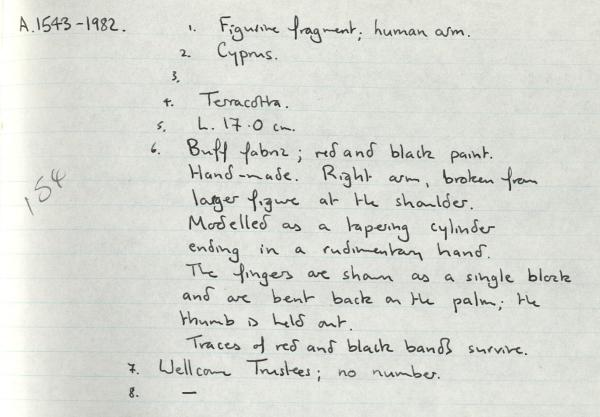 A.1543-1982.
1. Figurine fragment; human arm.
2. Cyprus.
3.
4. Terracotta.
5. L. 17.0 cm.
6. Buff fabric; red and black paint.
Hand-made. Right arm, broken from
larger figure at the shoulder.
Modelled as a tapering cylinder
ending in a rudimentary hand.
The fingers are shown as a single block
and are bent back on the palm; the
thumb is held out.
Traces of red and black bands survive.
7. Wellcome Trustees; no number.
8. —
154